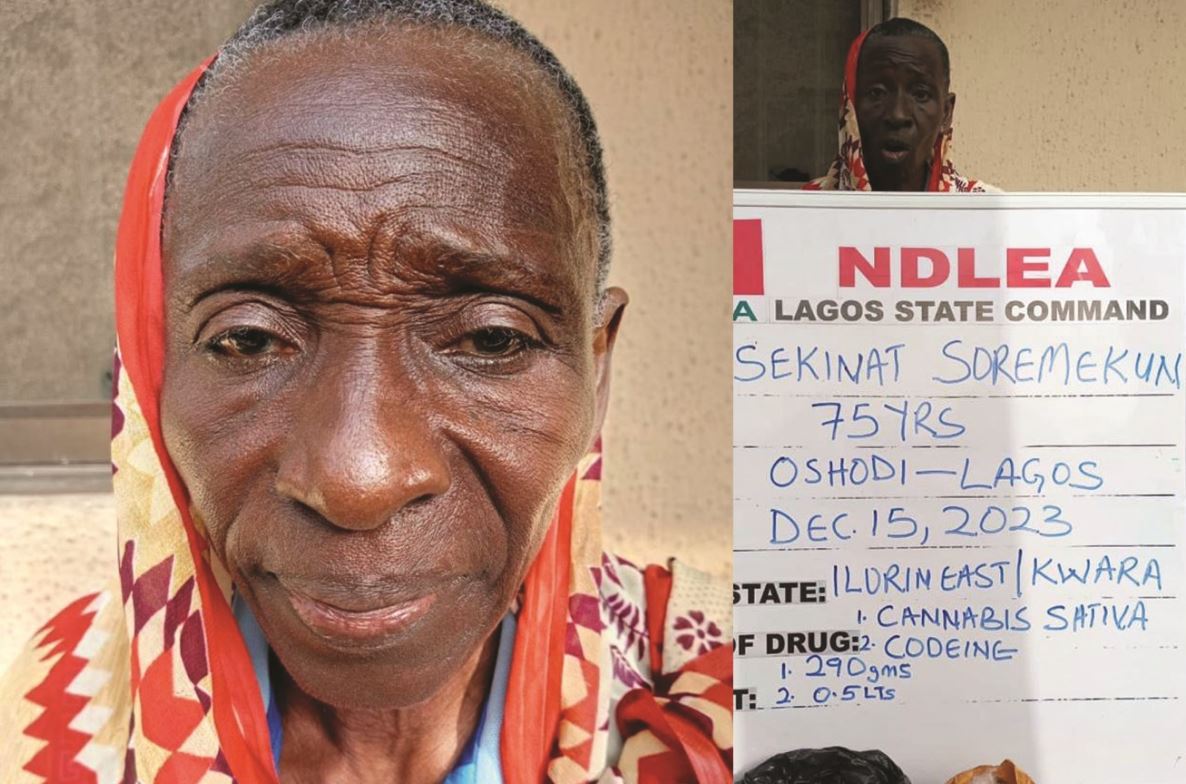 NDLEA
A LAGOS STATE COMMAND
SEKINAT SOREMEKUN
75 YRS
OSHODI—LAGOS
DEC. 15, 2023
STATE: ILORIN EAST/KWARA
1. CANNABIS SATIVA
F DRUG: 2. CODEINE
1. 290gms
T: 2. 0.5LTs